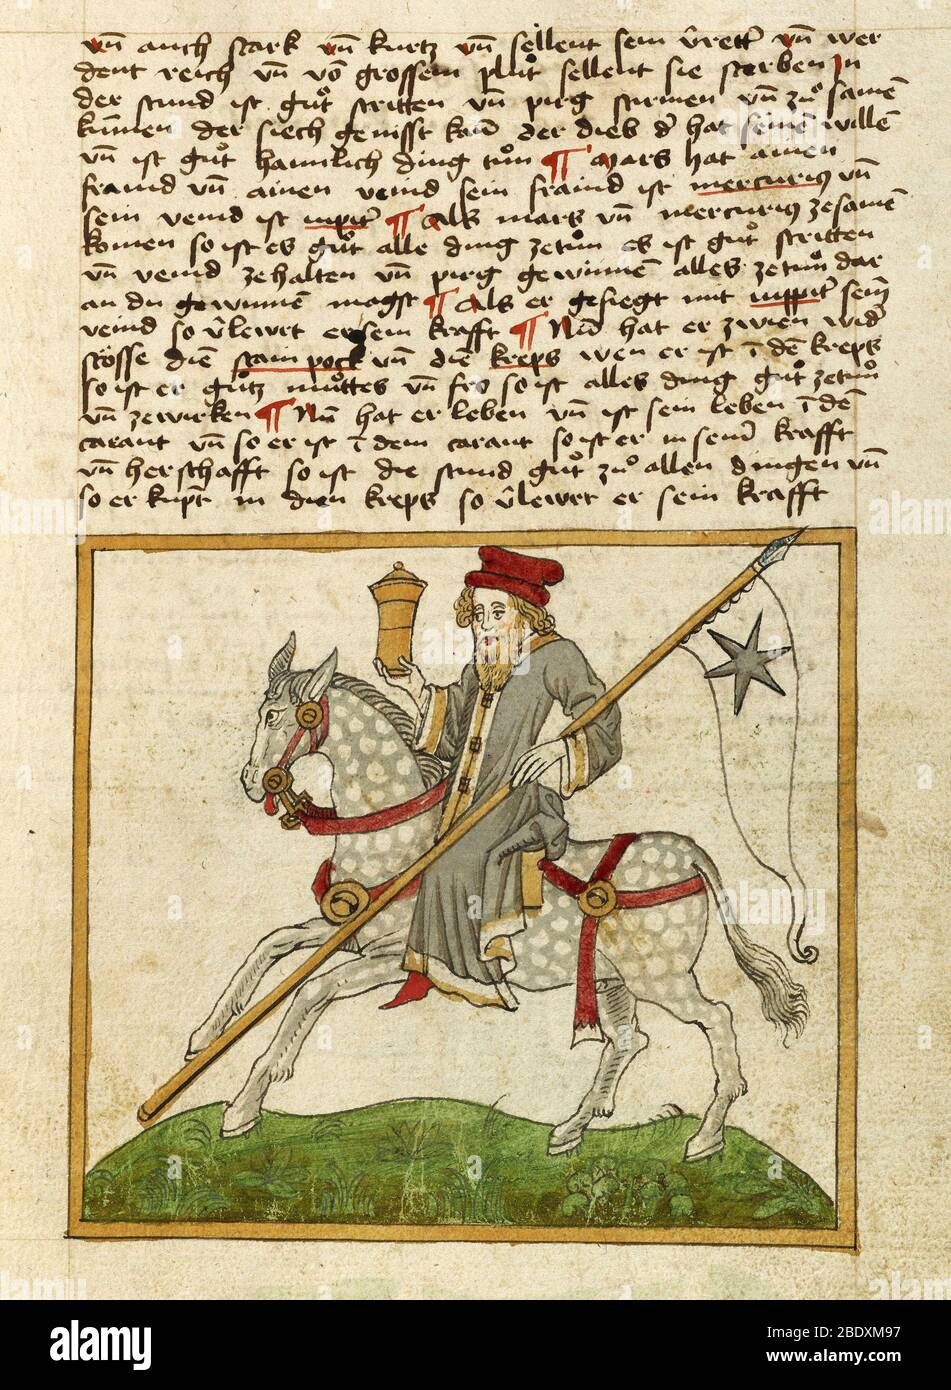 vn̄ auch stark vn̄ kurtz vn̄ sellent sein v̂rett' vn̄ wer
dent reich vn̄ vō grossem plůt sellent sie sterben In
der stund ist gůt stritten vn̄ pürg stürmen vn̄ zů samē
kumen der siech genisst kaū der dieb d' hat seinē willē
vn̄ ist gůt haimlich ding tůn ¶ Mars hat ainen
fraind vn̄ ainen veind sein fraind ist mercuriꝰ vn̄
sein veind ist iupit' ¶ Als mars vn̄ mercuriꝰ zesamē
komen so ist es gůt alle ding zetůn es ist gůt stritten
vn̄ veind zehalten vn̄ pürg gewinnen alles zetůn dar
an du gewinnen magst ¶ Als er gesiegt mit iuppit' seim̄
veind so v̂lewrt er sein krafft ¶ Nun hat er zwien wid'
stösse dien stainpock vn̄ dien kreps wen er ist ī dē kreps
so ist er gůtz můttes vn̄ fro so ist alles ding gůt zetůn
vn̄ zewirken ¶ Nun hat er leben vn̄ ist sein leben ī dē
tarant vn̄ so er ist ī dem tarant so ist er in sein' krafft
vn̄ herschafft so ist die stund gůt zů allen dingen vn̄
so er kupt in dien kreps so v̂lewrt er sein krafft
alamy
Image ID: 2BDXM97
www.alamy.com